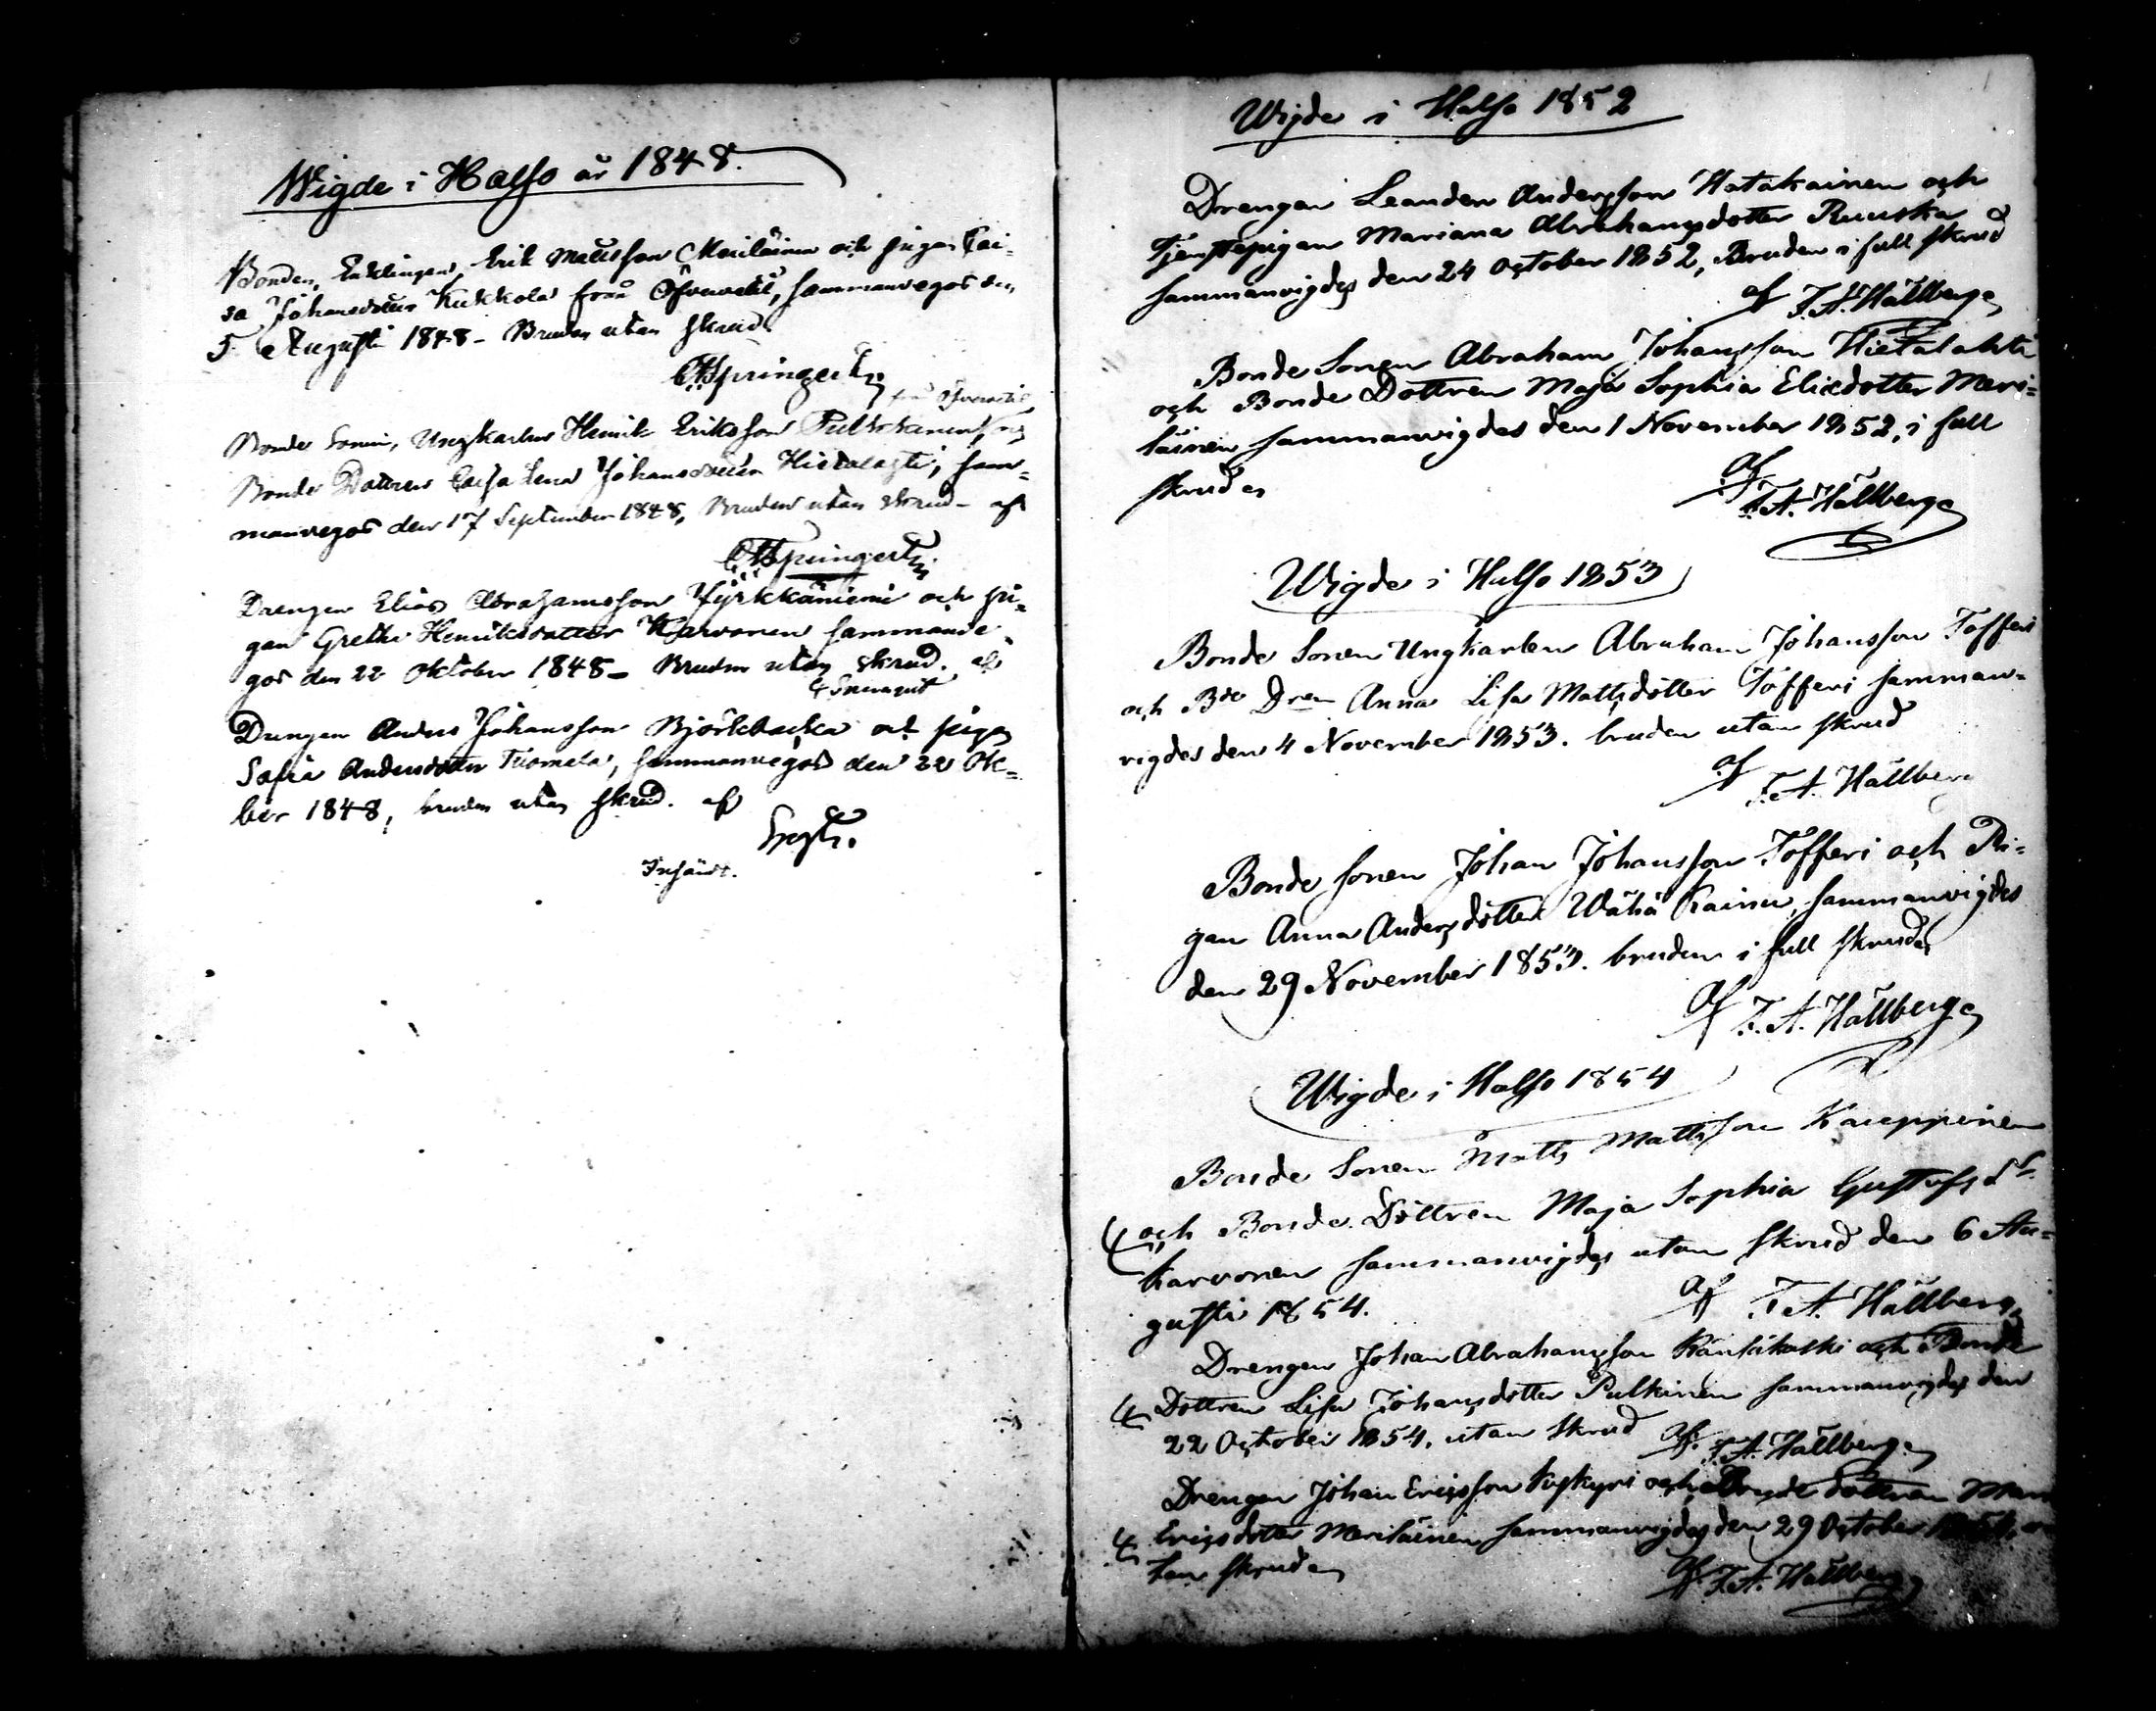 Wigde i Halso år 1848.
Bonden, Enklingen, Erik Mattsson Meriläinen och pigan Cai-
sa Johansdotter Kukkola från Öfvervetil, sammanvegos den
5 Augusti 1848 - Bruden utan skrud.
Springert
från Öfvervetil
Bonde Sonen, Ungkarlen Henrik Eriksson Pulkkanen, och
Bonde Dottren Cajsa Lena Johansdotter Hietalachti, sam=
manvegos den 17 September 1848, Bruden utan skrud - af
Springert
Drengen Elias Abrahamsson Pyrkkäniemi och pi=
gan Greta Henriksdotter Karvonen sammanve-
gos den 22 Oktober 1848 - Bruden utan skrud. af
Drengen Anders Johansson Björkbacka och pigan
Sofia Andersdotter Tuomela, sammanvegos den 22 Ok=
ber 1848, bruden utan skrud. af
Wigde i Halso 1852
Drengen Leander Andersson Hotakainen och
Tjenstepigan Mariana Abrahamsdotter Ruuska
sammanvigdes den 24 October 1852, Bruden i full skrud
af F. A. Hällberg
Bonde Sonen Abraham Johansson Hietalahti
och Bonde Dottren Maja Sophia Eliedotter Meri=
läinen sammanvigdes den 1 November 1852, i full
skrud
af
F. A. Hällberg
Wigde i Halso 1853
Bonde Sonen Ungkarlen Abraham Johansson Töfferi
och Bde Dren Anna Lisa Mattsdotter Töfferi samman=
vigdes den 4 November 1853. bruden utan skrud
af
F. A. Hällberg
Bonde sonen Johan Johansson Töfferi och Pi=
gan Anna Andersdotter Wähä Kainu, sammanvigdes
den 29 November 1853. bruden i full skrud
af F. A. Hällberg
Wigde i Halso 1854
Bonde Sonen Matts Mattsson Kauppinen
och Bonde Dottren Maja Sophia Gustafs dr
Karvonen sammanvigdes utan skrud den 6 Au=
gusti 1854.
af F. A. Hällberg
Drengen Johan Abrahamsson Känsäkoski och Bonde
Dottren Lisa Johansdotter Pulkinen sammanvigdes den
22 October 1854. utan skrud af F. A. Hällberg
Drengen Johan Ericsson Kyskyri och Bonde dottren
Ericsdotter Meriläinen sammanvigdes den 29 October 1854, u
tan skrud
af F. A. Hällberg